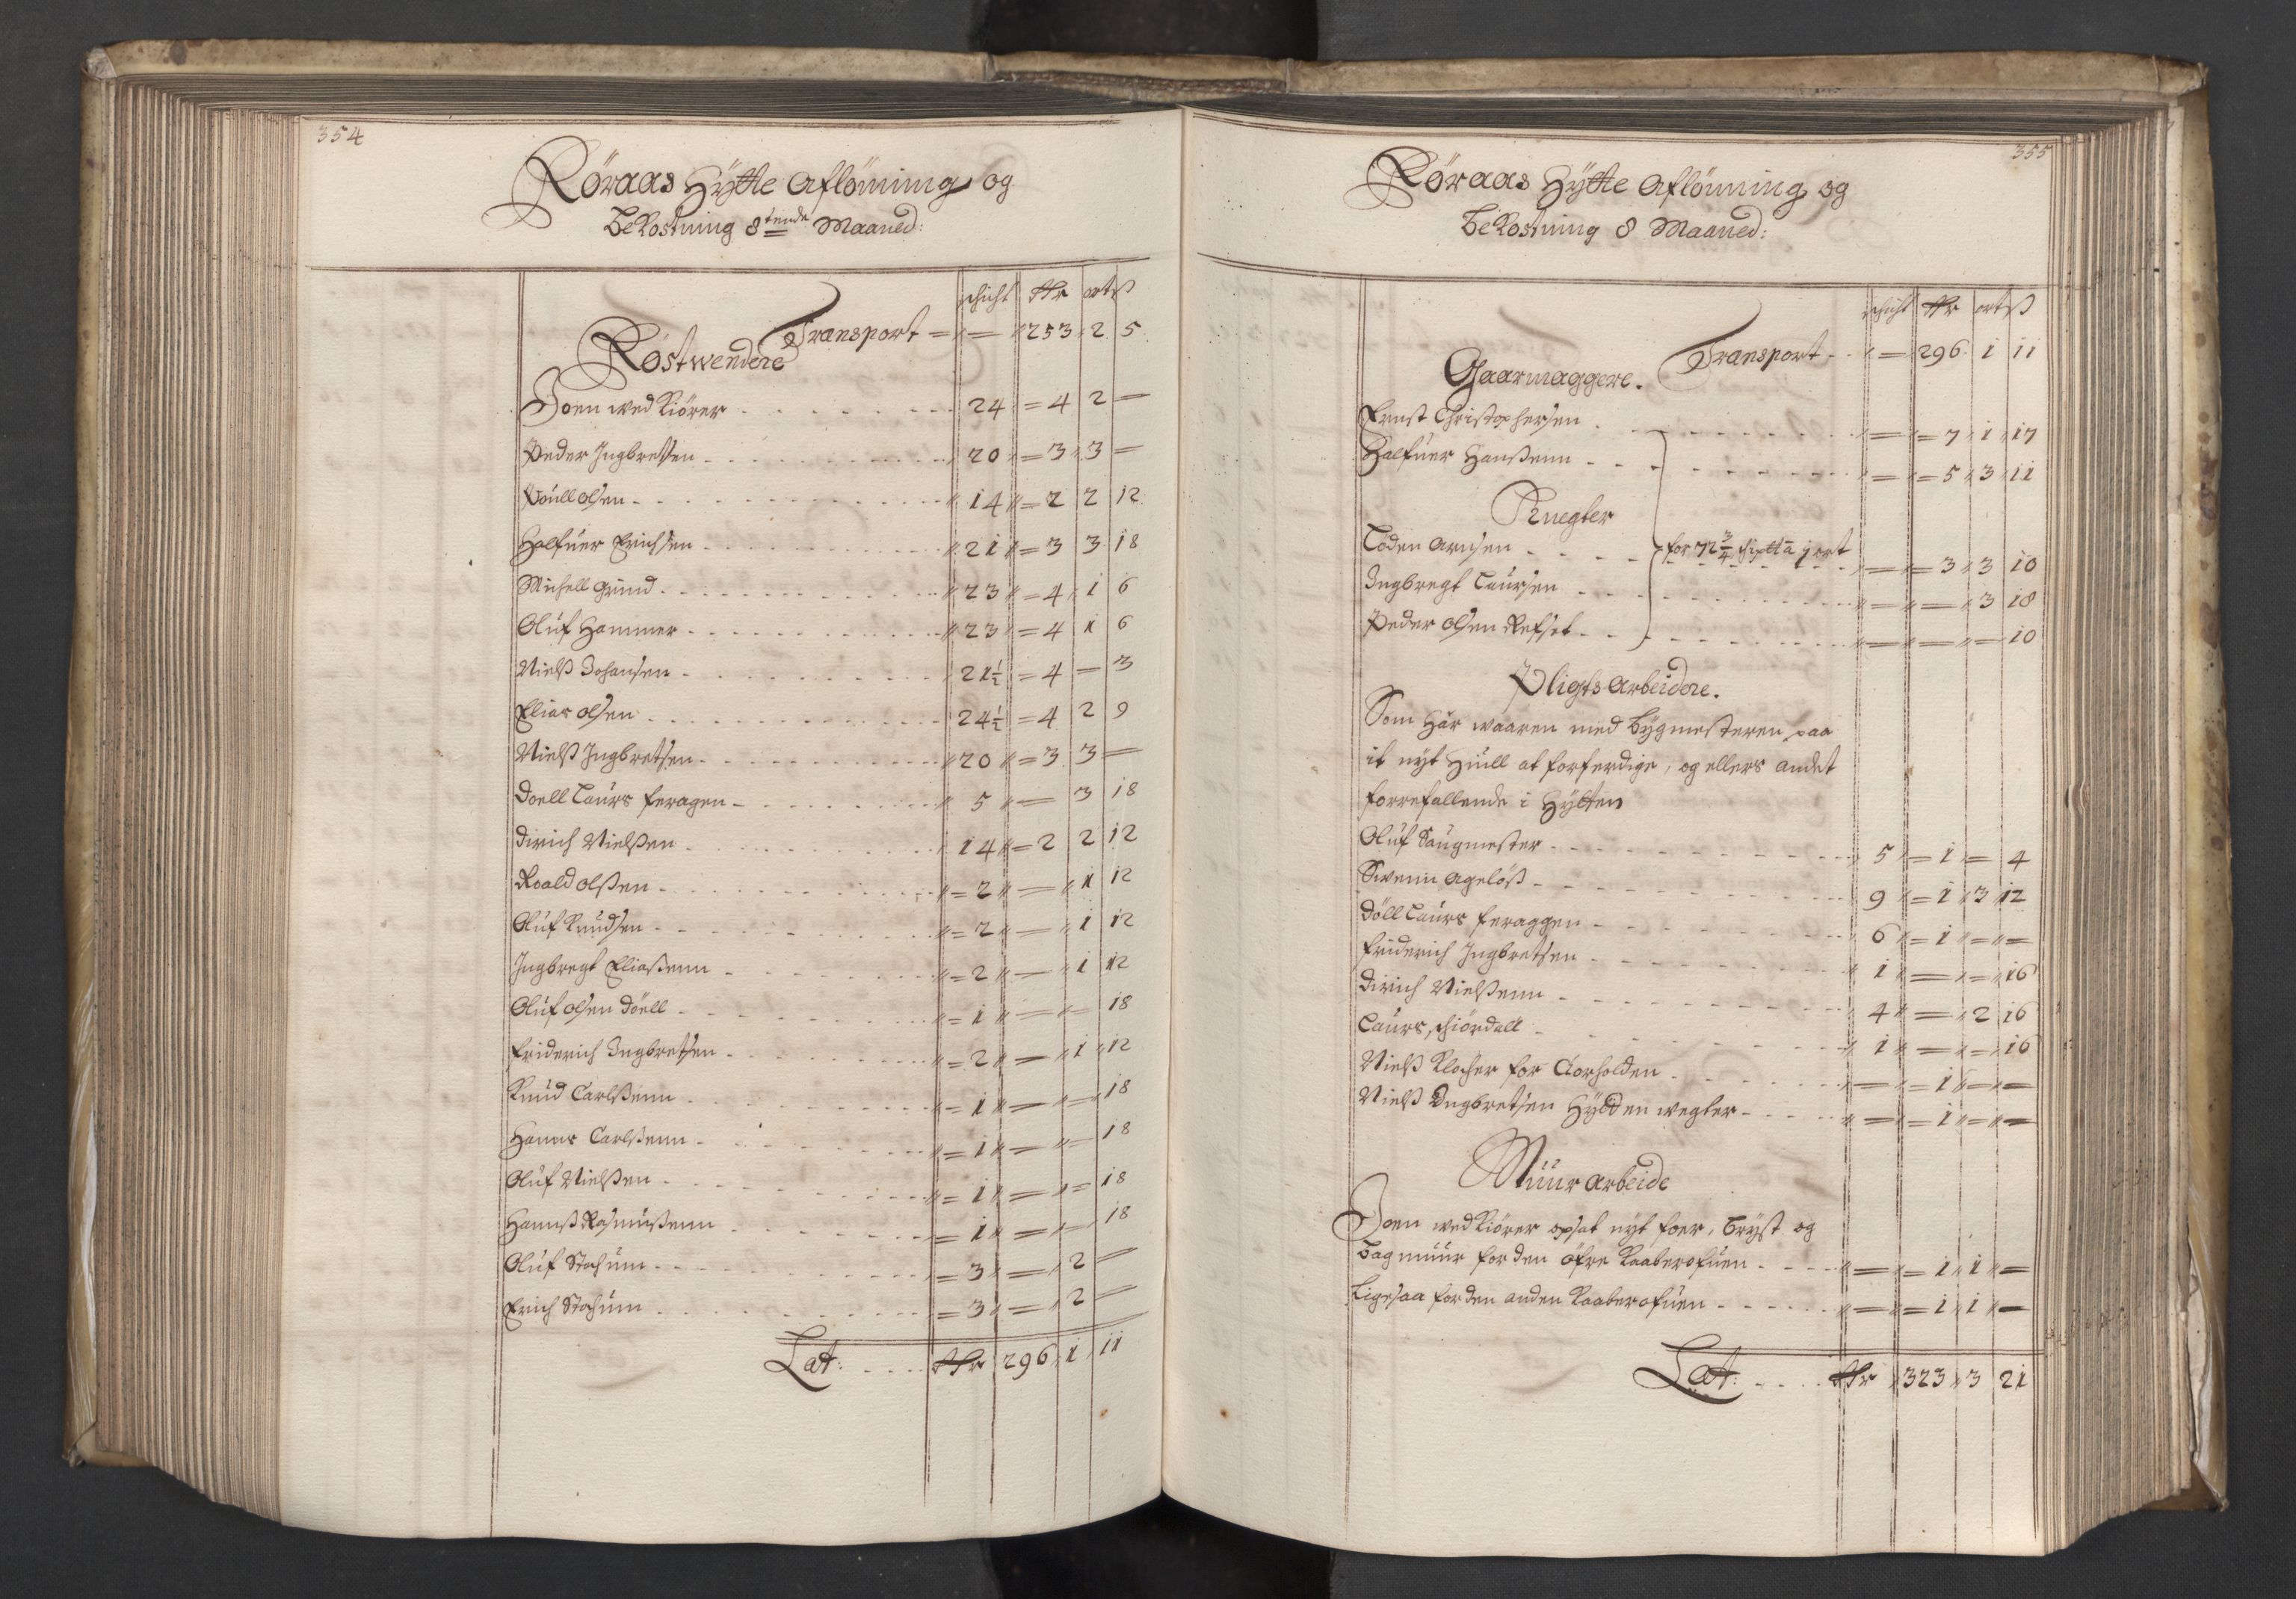 354
Röraas Hÿtte Aflönning og
Bekostning 8tende Maaned:
schicht Rdr ort ß
Transport = = 253 2 5
Röstwendere
Joen wed Kiörer 24 = 4 2 —
Peder Ingbretsen 20 = 3 3 —
Poüll olsen 14 = 2 2 12
Halfuer Erichsen 21 = 3 3 18
Michell Grind 23 = 4 1 6
Olüf Hammer 23 = 4 1 6
Nielß Johansen 21½ = 4 — 3
Elias olsen 24½ = 4 2 9
Nielß Ingbretsen 20 = 3 3 —
Doell Laürs feragen 5 = 3 18
Dirich Nielßen 14 = 2 2 12
Roald olßen = 2 — 1 12
Olüf Knüdsen = 2 — 1 12
Ingbregt Eliaßenn = 2 — 1 12
Olüf olsen Döell = 1 — = 18
Friderich Ingbretsen = 2 — 1 12
Knüd Carlßenn = 1 — = 18
Hanns Carlßenn = 1 — = 18
Olüf Nielßen = 1 — = 18
Hannß Rasmüßenn = 1 — = 18
Olüf Stachüm = 3 — 2 —
Erich Stachüm = 3 — 2 —
Lat: Rdr 296 1 11
355
Röraas Hÿtte Aflönning og
Bekostning 8 Maaned:
schicht Rdr ort ß
Transport = 296 1 11
Gaarmaggere.
Ernst Christophersen = = 7 1 17
Halfuer Hanßenn = = 5 3 11
Knegter
Löden Arnsen for 72¾ skptt a 1 ort = = 3 3 10
Ingbregt Laürsen = = 3 18
Peder olsen Refset = = = 10
Pligts Arbeidere.
Som Här waaren med Bÿgmesteren paa
it nÿt Hiüll at forferdige, og ellers andet
forrefallende i Hÿtten
Olüf Saügmester 5 = 1 = 4
Swenn Ageløß 9 = 1 3 12
Döll Laürs feraggen 6 = 1 = =
Friderich Ingbretsen 1 = = 16
Dirich Nielßenn 4 = 2 16
Laürs schiördall 1 = = 16
Nielß Klocher for Clocholden = = 1 = =
Nielß Ingbretsen Hÿdden wegter = = 1 = =
Müür Arbeide
Joen wed Kiörer opsat nÿt foer, Brÿst og
Bagmüür for den öfre Kaaberofuen = = 1 1 =
Ligesaa for den anden Kaaberofuen = = 1 1 =
Lat: Rdr 323 3 21